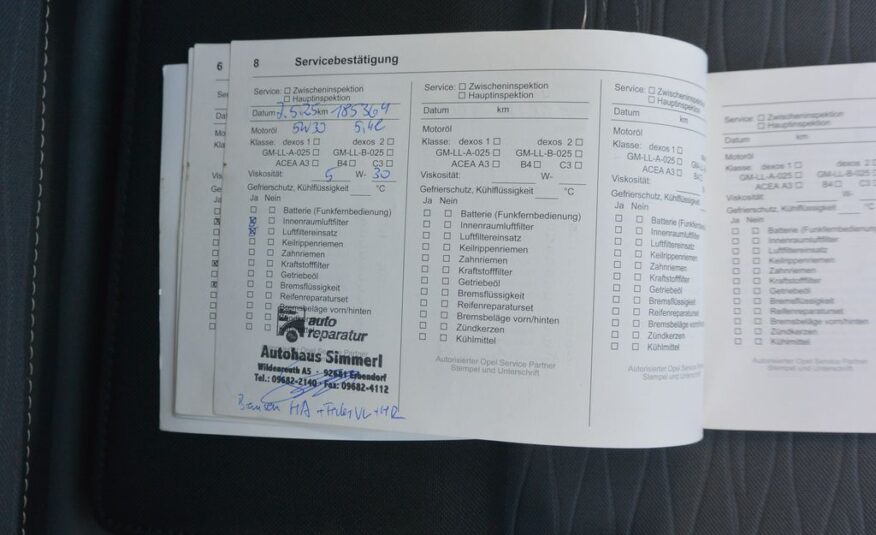 6
8 Servicebestätigung
Service: Zwischeninspektion
Hauptinspektion
Datum 7.5.25 km 185364
Motoröl 5W30 5,4L
Klasse: dexos 1 dexos 2
GM-LL-A-025 GM-LL-B-025
ACEA A3 B4 C3
Viskosität: 5 W- 30
Gefrierschutz, Kühlflüssigkeit °C
Ja Nein
Batterie (Funkfernbedienung)
Innenraumluftfilter
Luftfiltereinsatz
Keilrippenriemen
Zahnriemen
Kraftstofffilter
Getriebeöl
Bremsflüssigkeit
Reifenreparaturset
Bremsbeläge vorn/hinten
auto
reparatur
Autohaus Simmerl
Wildenreuth A5 · 92681 Erbendorf
Tel.: 09682-2140 · Fax: 09682-4112
HA +
Service: Zwischeninspektion
Hauptinspektion
Datum km
Motoröl
Klasse: dexos 1 dexos 2
GM-LL-A-025 GM-LL-B-025
ACEA A3 B4 C3
Viskosität: W-
Gefrierschutz, Kühlflüssigkeit °C
Ja Nein
Batterie (Funkfernbedienung)
Innenraumluftfilter
Luftfiltereinsatz
Keilrippenriemen
Zahnriemen
Kraftstofffilter
Getriebeöl
Bremsflüssigkeit
Reifenreparaturset
Bremsbeläge vorn/hinten
Zündkerzen
Kühlmittel
Autorisierter Opel Service Partner
Stempel und Unterschrift
Service: Zwischeninspektion
Hauptinspektion
Datum km
Motoröl
Klasse: dexos 1 dexos 2
GM-LL-A-025 GM-LL-B-025
ACEA A3 B4 C3
Viskosität: W-
Gefrierschutz, Kühlflüssigkeit °C
Ja Nein
Batterie (Funkfernbedienung)
Innenraumluftfilter
Luftfiltereinsatz
Keilrippenriemen
Zahnriemen
Kraftstofffilter
Getriebeöl
Bremsflüssigkeit
Reifenreparaturset
Bremsbeläge vorn/hinten
Zündkerzen
Kühlmittel
Autorisierter Opel Service Partner
Stempel und Unterschrift
Service: Zwischeninspektion
Hauptinspektion
Datum km
Motoröl
Klasse: dexos 1 dexos 2
GM-LL-A-025 GM-LL-B-025
ACEA A3 B4 C3
Viskosität: W-
Gefrierschutz, Kühlflüssigkeit °C
Ja Nein
Batterie (Funkfernbedienung)
Innenraumluftfilter
Luftfiltereinsatz
Keilrippenriemen
Zahnriemen
Kraftstofffilter
Getriebeöl
Bremsflüssigkeit
Reifenreparaturset
Bremsbeläge vorn/hinten
Zündkerzen
Kühlmittel
Autorisierter Opel Service Partner
Stempel und Unterschrift